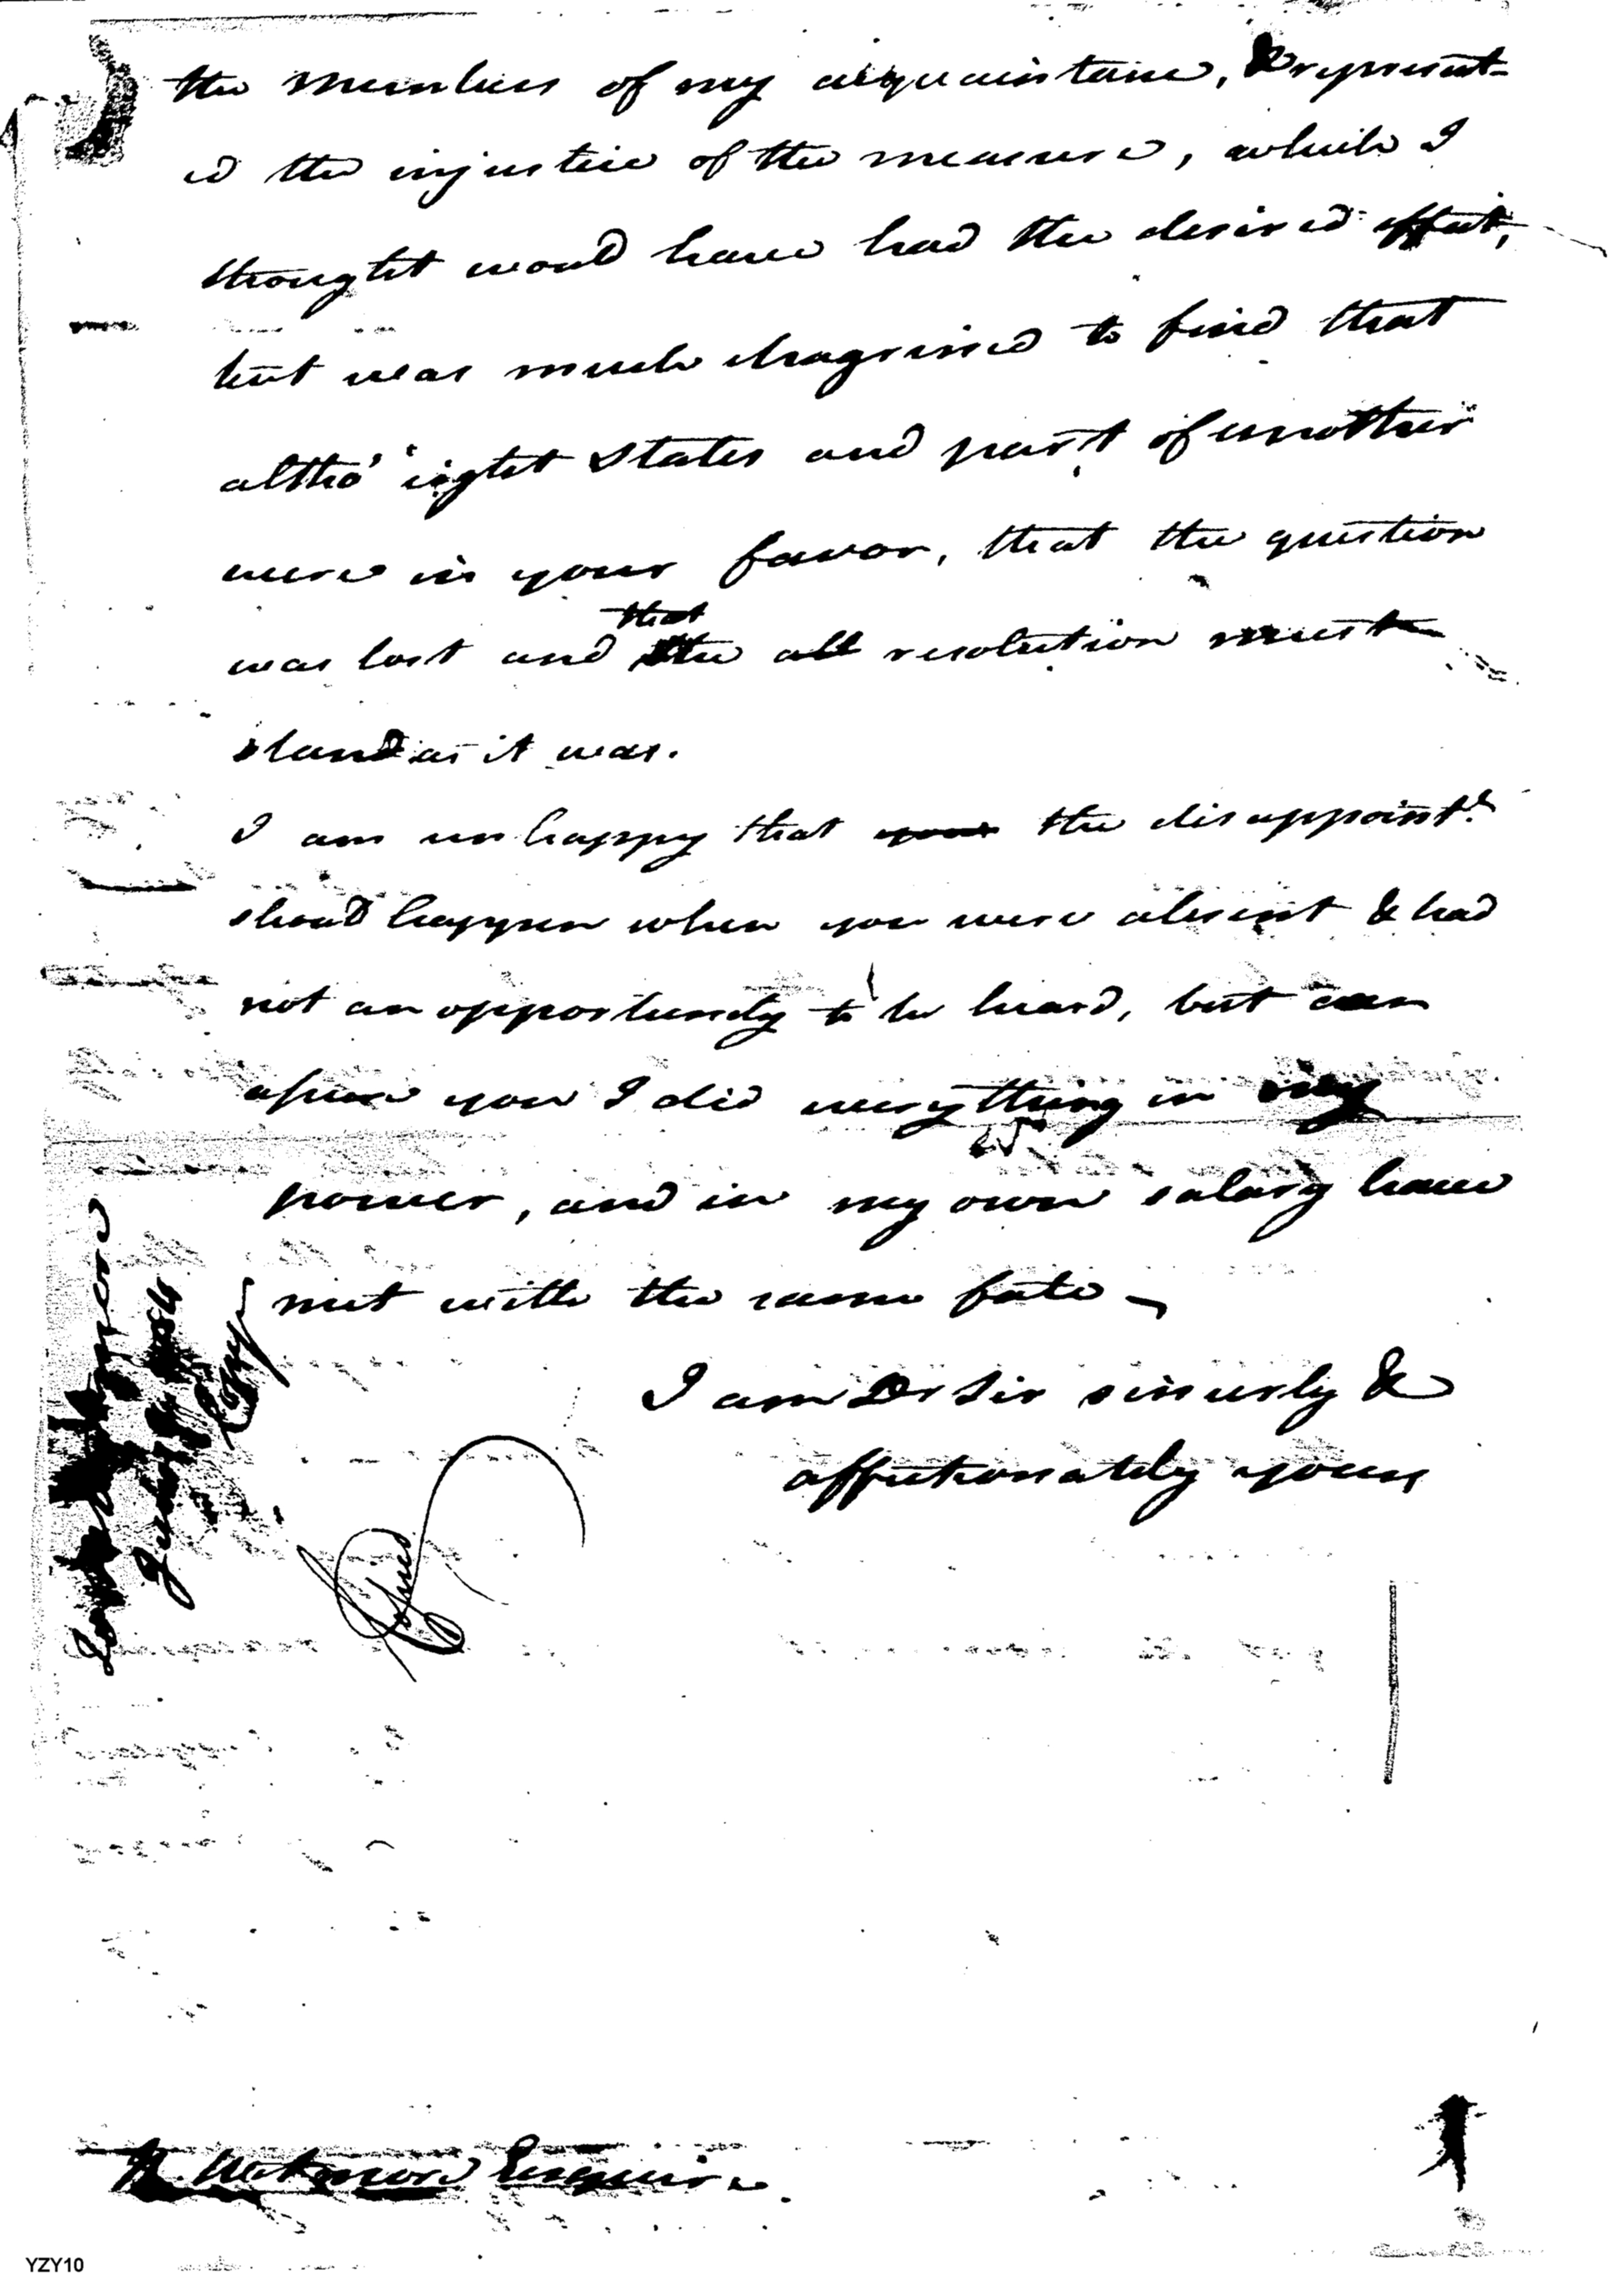 the members of my acquaintance, & represent-
ed the injustice of the measure, which I
thought would have had the desired effect,
but was much chagrined to find that
altho' eight States and part of another
were in your favor, that the question
that
was lost and the all resolution must
stand as it was.
I am unhappy that your the disappoint.t
should happen when you were absent & had
not an opportunity to be heard, but can
assure you I did everything in my
power, and in my own salary have
met with the same fate –
I am Dr Sir sincerely &
affectionately yours
Copy
W. Wetmore Esquire
YZY10